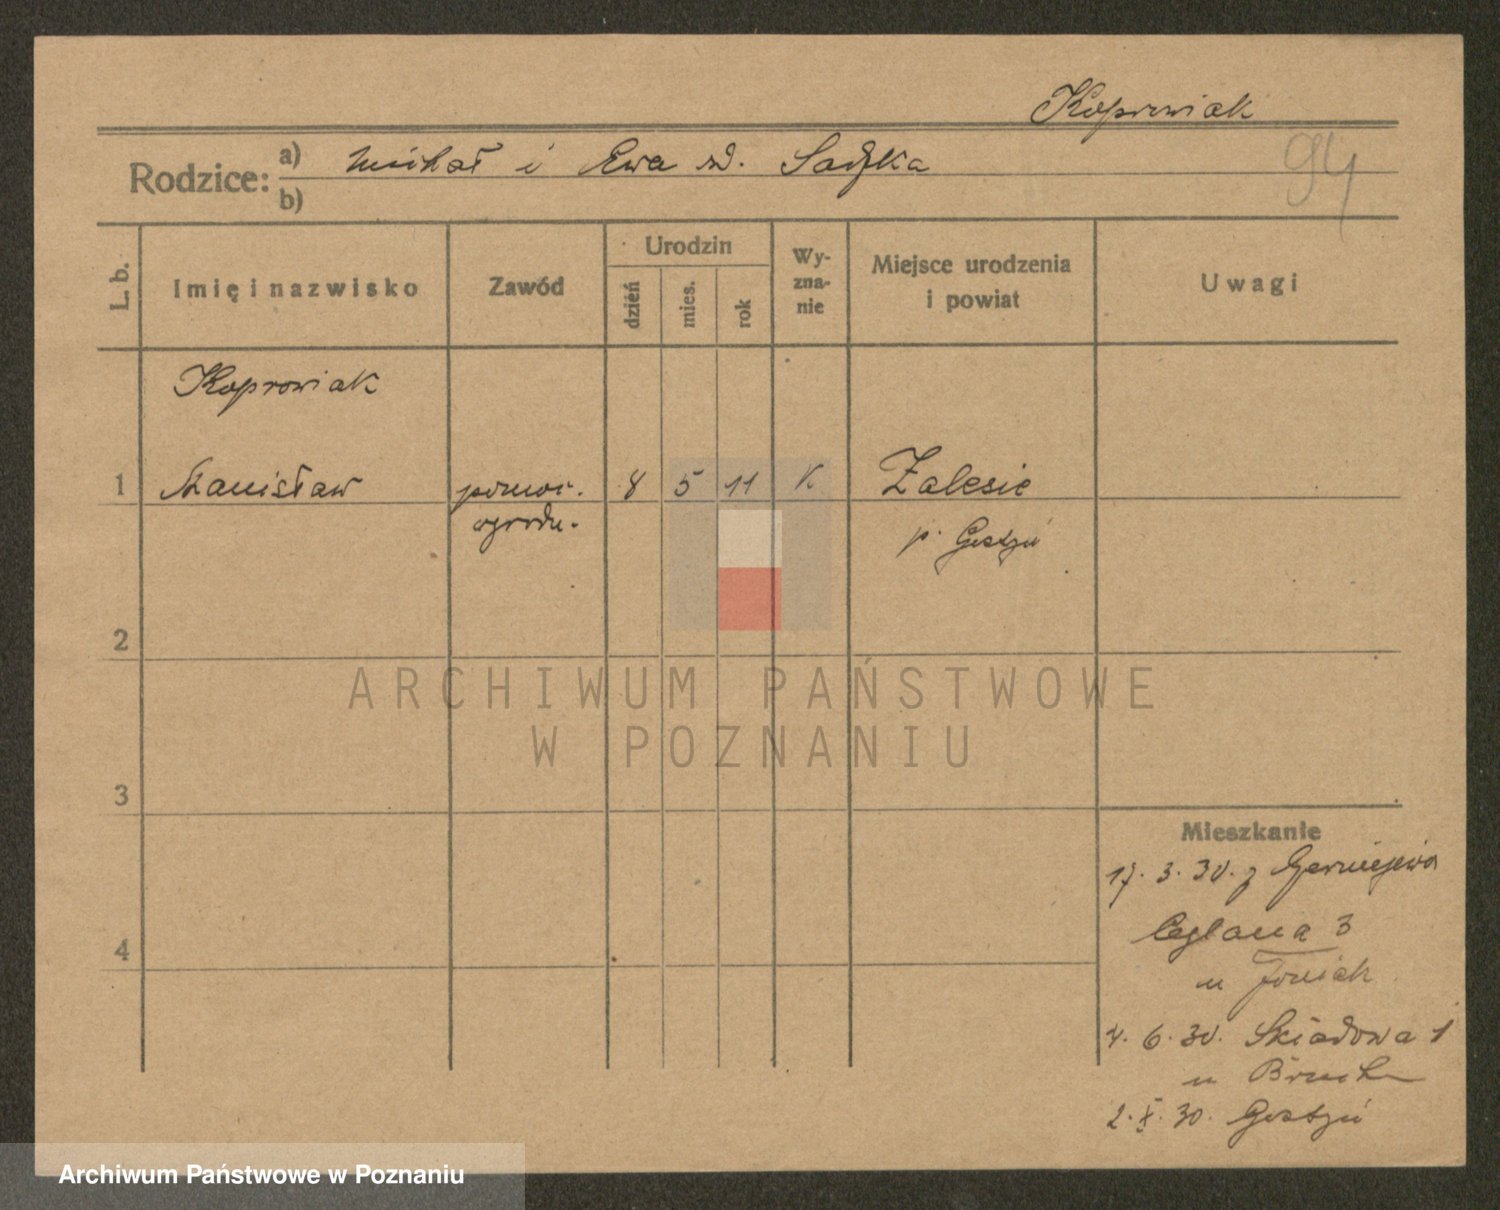 Koprowiak
94
Rodzice: a) Michał i Ewa zd. Sadzka
b)
L. b.
Imię i nazwisko
Zawód
Urodzin
dzień
mies.
rok
Wy-
zna-
nie
Miejsce urodzenia
i powiat
Uwagi
Koprowiak
1 Stanisław pomoc. 8 5 11 K Zalesie
ogrodn. p. Gostyń
2
ARCHIWUM PAŃSTWOWE
W POZNANIU
3
4
Mieszkanie
17. 3. 30. z
Ceglana 3
u
4. 6. 30. Składowa 1
u
2. X. 30. Gostyń
Archiwum Państwowe w Poznaniu